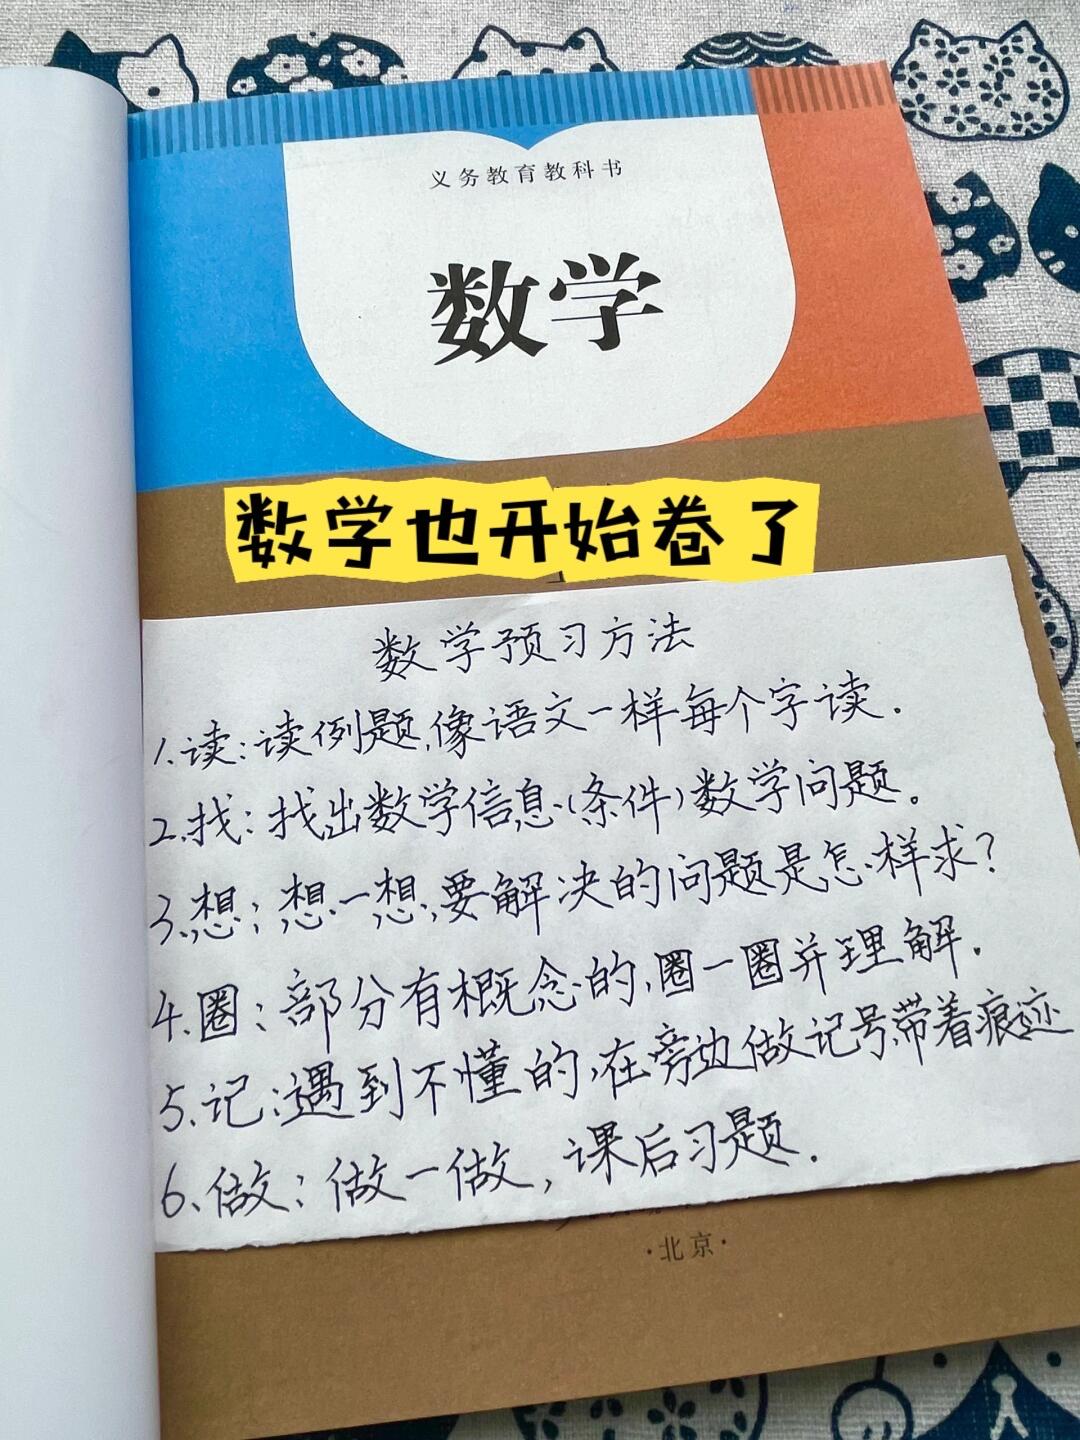 义务教育教科书
数学
数学也开始卷了
数学预习方法
1.读:读例题,像语文一样每个字读.
2.找:找出数学信息(条件)数学问题。
3.想:想一想,要解决的问题是怎样求?
4.圈:部分有概念的,圈一圈并理解.
5.记:遇到不懂的,在旁边做记号,带着痕迹
6.做:做一做,课后习题.
·北京·